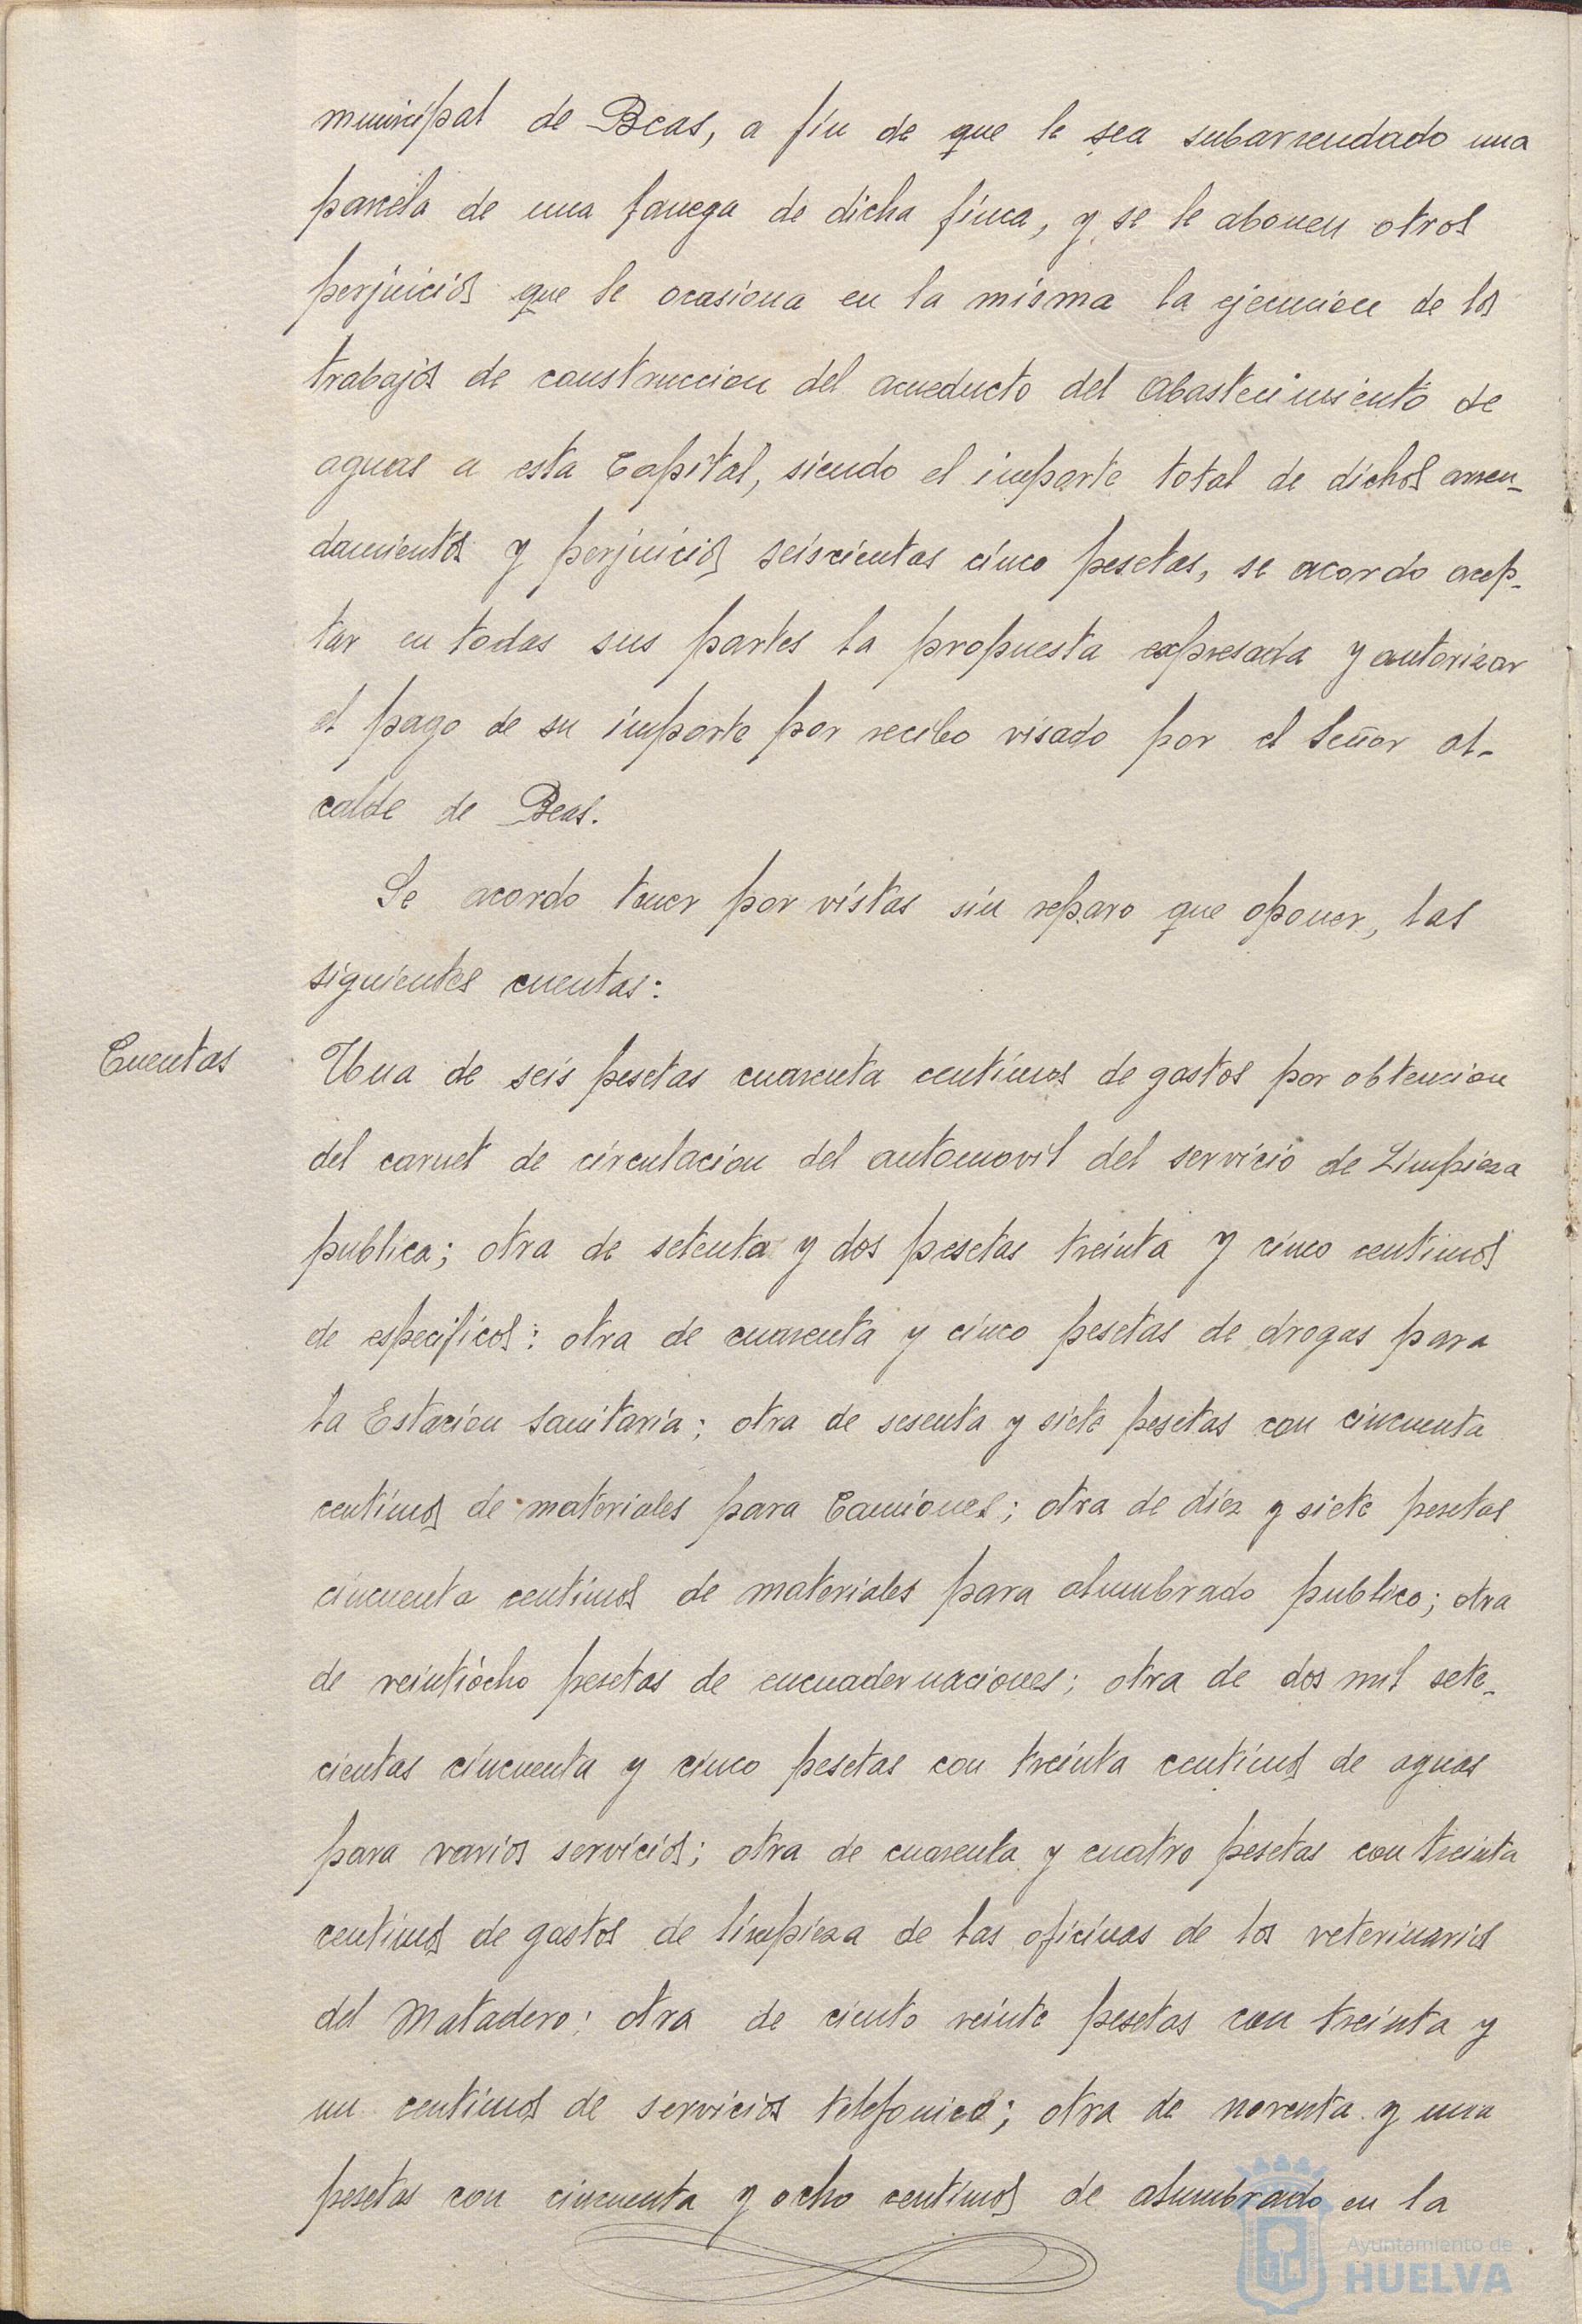 municipal de Beas, a fin de que le sea subarrendado una
parcela de una fanega de dicha finca, y se le abonen otros
perjuicios que le ocasiona en la misma la ejecucion de los
trabajos de construccion del acueducto del abastecimiento de
aguas a esta Capital, siendo el importe total de dichos arren-
damientos y perjuicios seiscientas cinco pesetas, se acordo acep-
tar en todas sus partes la propuesta expresada y autorizar
el pago de su importe por recibo visado por el Señor al-
calde de Beas.
Se acordo tener por vistas sin reparo que oponer, las
siguientes cuentas:
Cuentas
Una de seis pesetas cuarenta centimos de gastos por obtencion
del carnet de circulacion del automovil del servicio de Limpieza
publica; otra de setenta y dos pesetas treinta y cinco centimos
de especificos: otra de cuarenta y cinco pesetas de drogas para
la Estacion Sanitaria; otra de sesenta y siete pesetas con cincuenta
centimos de materiales para Camiones; otra de diez y siete pesetas
cincuenta centimos de materiales para alumbrado publico; otra
de veintiocho pesetas de encuadernaciones; otra de dos mil sete-
cientas cincuenta y cinco pesetas con treinta centimos de aguas
para varios servicios; otra de cuarenta y cuatro pesetas con treinta
centimos de gastos de limpieza de las oficinas de los veterinarios
del Matadero; otra de ciento veinte pesetas con treinta y
un centimos de servicios telefonico; otra de noventa y una
pesetas con cincuenta y ocho centimos de alumbrado en la
Ayuntamiento de
HUELVA